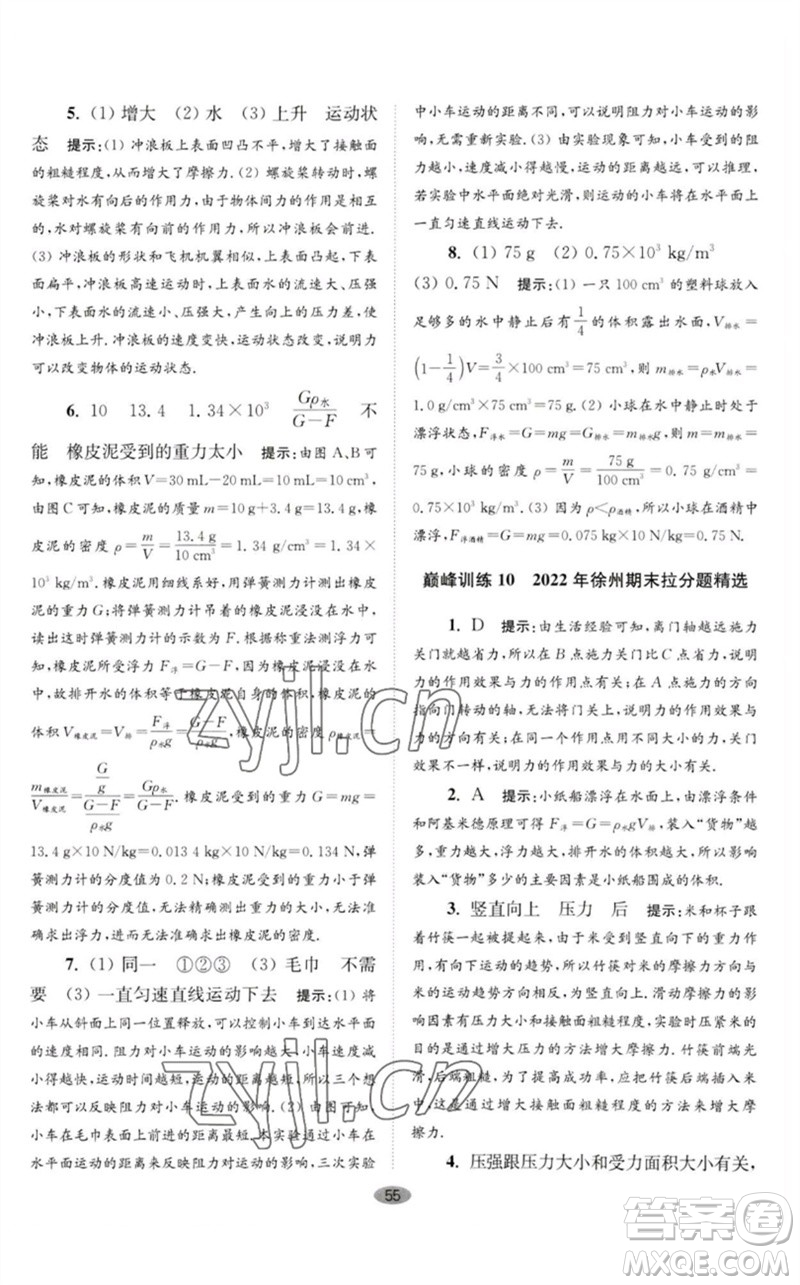 5. (1) 增大 (2) 水 (3) 上升 运动状
态 提示:(1) 冲浪板上表面凹凸不平,增大了接触面
的粗糙程度,从而增大了摩擦力. (2) 螺旋桨转动时,螺
旋桨对水有向后的作用力,由于物体间力的作用是相互
的,水对螺旋桨有向前的作用力,所以冲浪板会前进.
(3) 冲浪板的形状和飞机机翼相似,上表面凸起,下表
面扁平,冲浪板高速运动时,上表面水的流速大、压强
小,下表面水的流速小、压强大,产生向上的压力差,使
冲浪板上升. 冲浪板的速度变快,运动状态改变,说明力
可以改变物体的运动状态.
6. 10 13.4 1.34×10³ Gρ水/(G−F) 不
能 橡皮泥受到的重力太小 提示:由图 A、B 可
知,橡皮泥的体积 V=30 mL−20 mL=10 mL=10 cm³,
由图 C 可知,橡皮泥的质量 m=10 g+3.4 g=13.4 g,橡
皮泥的密度 ρ=m/V=13.4 g/10 cm³=1.34 g/cm³=1.34×
10³ kg/m³. 橡皮泥用细线系好,用弹簧测力计测出橡皮
泥的重力为 G,将其挂在弹簧测力计下浸没在水中,读
出这时弹簧测力计的示数为 F. 根据称重法测浮力可知,
橡皮泥受到的浮力 F浮=G−F. 因为橡皮泥浸没在水
中,故排开水的体积等于橡皮泥自身的体积. 橡皮泥的体
积 V橡皮泥=V排=F浮/ρ水g=(G−F)/ρ水g,橡皮泥的密度 ρ橡皮泥=
m橡皮泥/V橡皮泥=(G/g)/((G−F)/ρ水g)=Gρ水/(G−F). 橡皮泥受到的重力 G=mg=
13.4 g×10 N/kg=0.013 4 kg×10 N/kg=0.134 N,弹
簧测力计的分度值为 0.2 N;橡皮泥受到的重力小于弹
簧测力计的分度值,无法精确测出重力的大小,用弹簧测
力计无法测出橡皮泥的密度.
7. (1) 同一 ①②③ (3) 毛巾 不需
要 (3) 一直匀速直线运动下去 提示:(1) 将
小车从斜面上同一位置释放,可以控制小车到达水平面
的速度相同. 阻力对小车运动的影响越大,小车的速度减
小得越快;阻力对小车运动的影响越小,小车的速度减小
得越慢. 阻力越大,速度减小得越快,则①②③三个现象
都可以反映阻力对小车运动的影响. (2) 由图可知,
小车在毛巾表面上滑行的距离最短. 本实验用小车在
水平面上滑行的距离来反映阻力对运动的影响,三次实验
中小车运动的距离不同,可以说明阻力对小车运动的影
响,无需重新实验. (3) 由实验现象可知,小车受到的阻
力越小,速度减小得越慢,运动的距离越远,可以推理,
若实验中水平面绝对光滑,则运动的小车将在水平面上
一直匀速直线运动下去.
8. (1) 75 g (2) 0.75×10³ kg/m³
(3) 0.75 N 提示:(1) 一只 100 cm³ 的塑料球放入
足够多的水中静止后有 1/4 的体积露出水面,V排水=
(1−1/4)V=3/4×100 cm³=75 cm³,则 m排水=ρ水V排水=
1.0 g/cm³×75 cm³=75 g. (2) 小球在水中静止时处于
漂浮状态,F浮水=G=mg=G排水=m排水g,则 m=m排水=
75 g,小球的密度 ρ=m/V=75 g/100 cm³=0.75 g/cm³=
0.75×10³ kg/m³. (3) 因为 ρ<ρ酒精,所以小球在酒精中
漂浮,F浮酒精=G=mg=0.075 kg×10 N/kg=0.75 N.
巅峰训练 10 2022 年徐州期末拉分题精选
1. D 提示:由生活经验可知,离门轴越远施力
关门就越省力,因此在 B 点施力关门比 C 点省力,说明
力的作用效果与力的作用点有关;在 A 点施力的方向
指向门转动的轴,不能将门关上,说明力的作用效果与力
的方向有关;关门力的大小与力的大小有关,说明力的作用
效果与力的大小有关.
2. A 提示:小纸船漂浮在水面上,由漂浮条件
和阿基米德原理可得 F浮=G=ρ水gV排,装入“货物”越
多,重力越大,浮力越大,排开水的体积越大,所以影响
装入“货物”多少的主要因素是小纸船围成的体积.
3. 竖直向上 压力 后 提示:米和杯子跟
着竹筷一起被提起来,由于米受到竖直向下的重力作用,
有向下运动的趋势,所以竹筷对米的摩擦力阻碍米向下
运动的趋势,因此方向是竖直向上. 滑动摩擦力的影响
因素有压力大小和接触面粗糙程度,将米压紧压实,是
通过增大压力的方法来增大摩擦力. 竹筷前端光
滑,后端粗糙,可以将竹筷的后端插入米
中,通过增大接触面粗糙程度的方法来增大摩
擦力.
4. 压强跟压力大小和受力面积大小有关,
55
zyjl.cn
zyjl.cn
答案圈
MXQE.COM